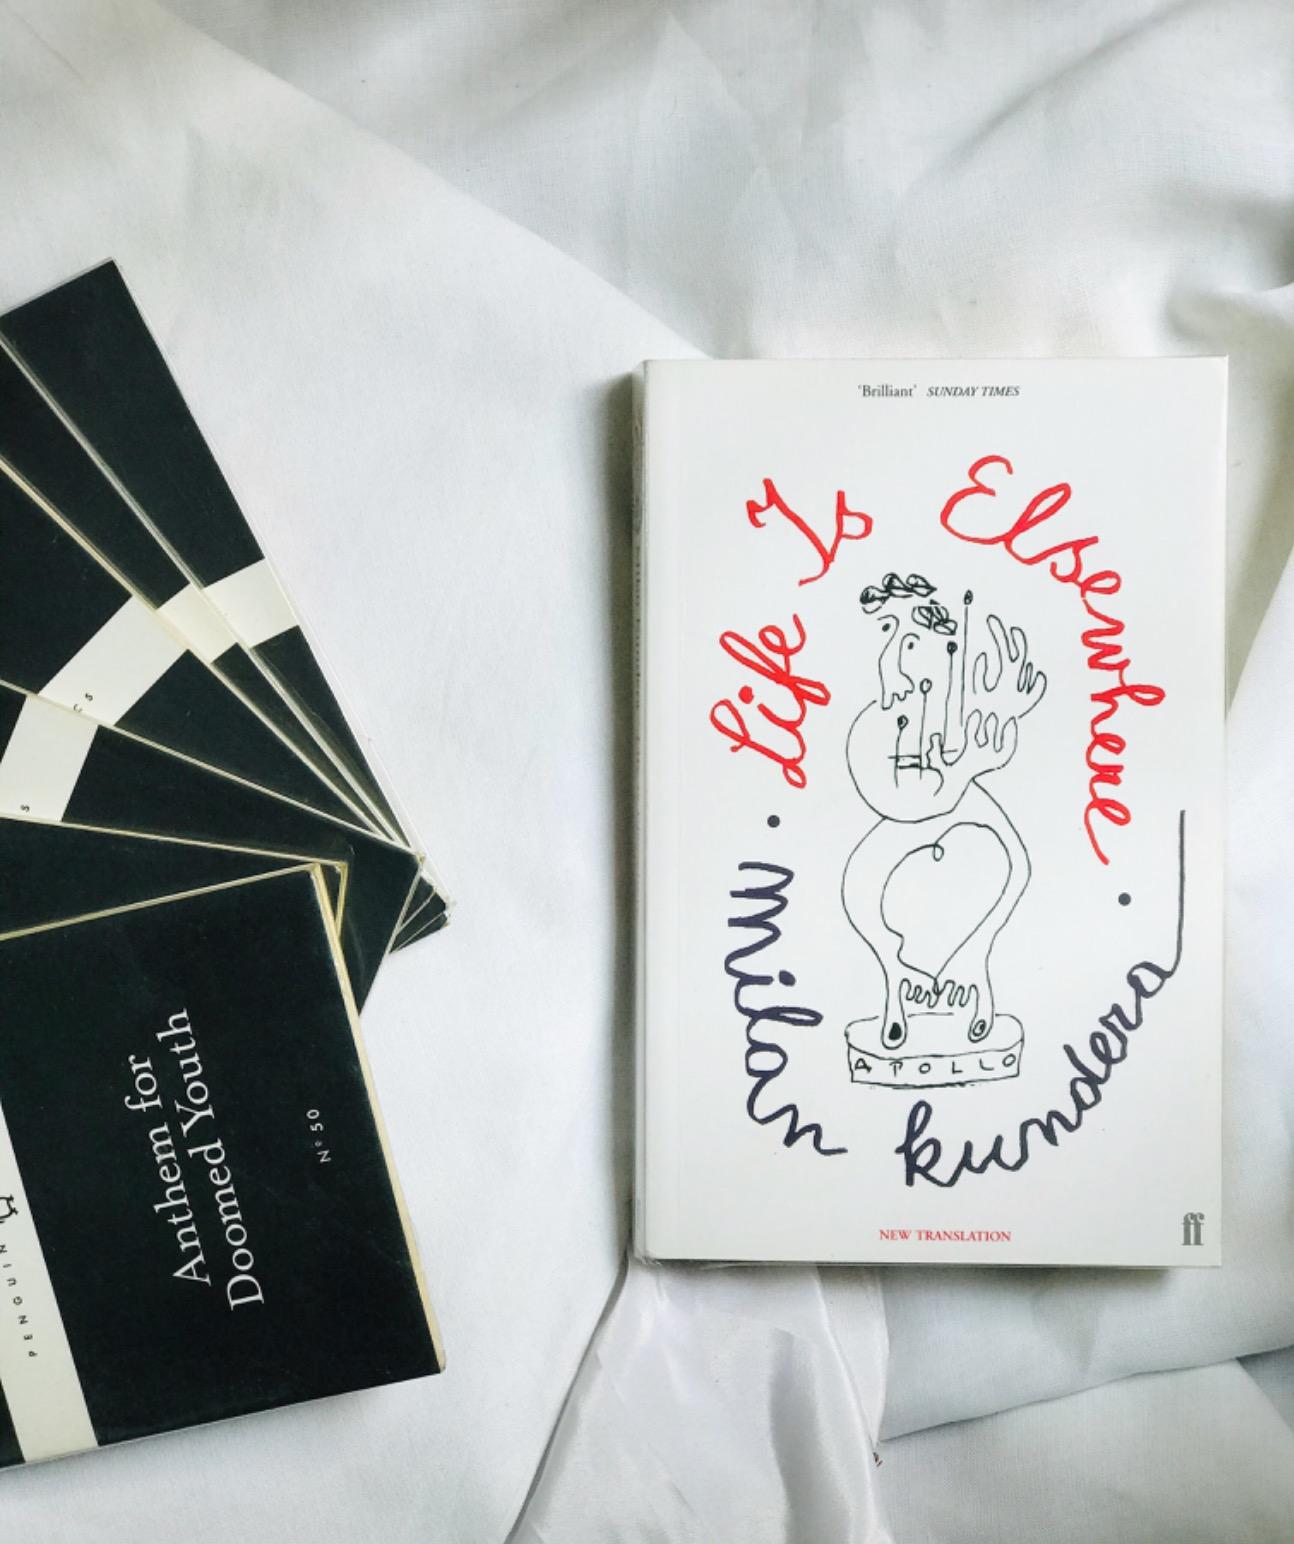 CS
S
Anthem for
Doomed Youth
Nº 50
PENGUIN
'Brilliant' SUNDAY TIMES
Life Is Elsewhere
milan kundera
APOLLO
NEW TRANSLATION
ff